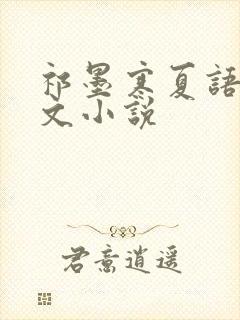 祁墨寒夏語
文小説
君意逍遥